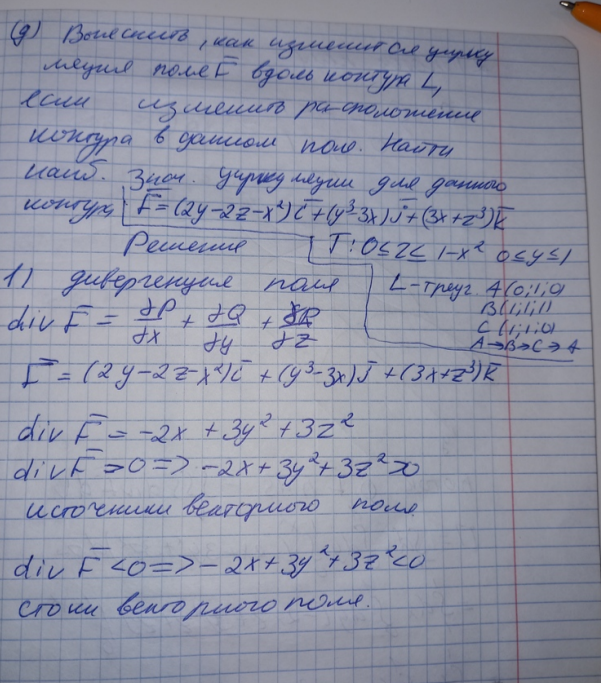 (д) Выяснить, как изменится цирку
ляция поля F̄ вдоль контура L,
если изменить расположение
контура в данном поле. Найти
наиб. знач. циркуляции для данного
контура F̄=(2y-2z-x²)ī+(y³-3x)j̄+(3x+z³)k̄
Решение
T: 0≤z≤1-x² 0≤y≤1
L-треуг A(0;1;0)
B(1;1;1)
C(1;1;0)
A→B→C→A
1) дивергенция поля
div F̄ = ∂P/∂x + ∂Q/∂y + ∂R/∂z
F̄=(2y-2z-x²)ī+(y³-3x)j̄+(3x+z³)k̄
div F̄=-2x+3y²+3z²
div F̄>0=>-2x+3y²+3z²>0
источники векторного поля
div F̄<0=>-2x+3y²+3z²<0
стоки векторного поля.